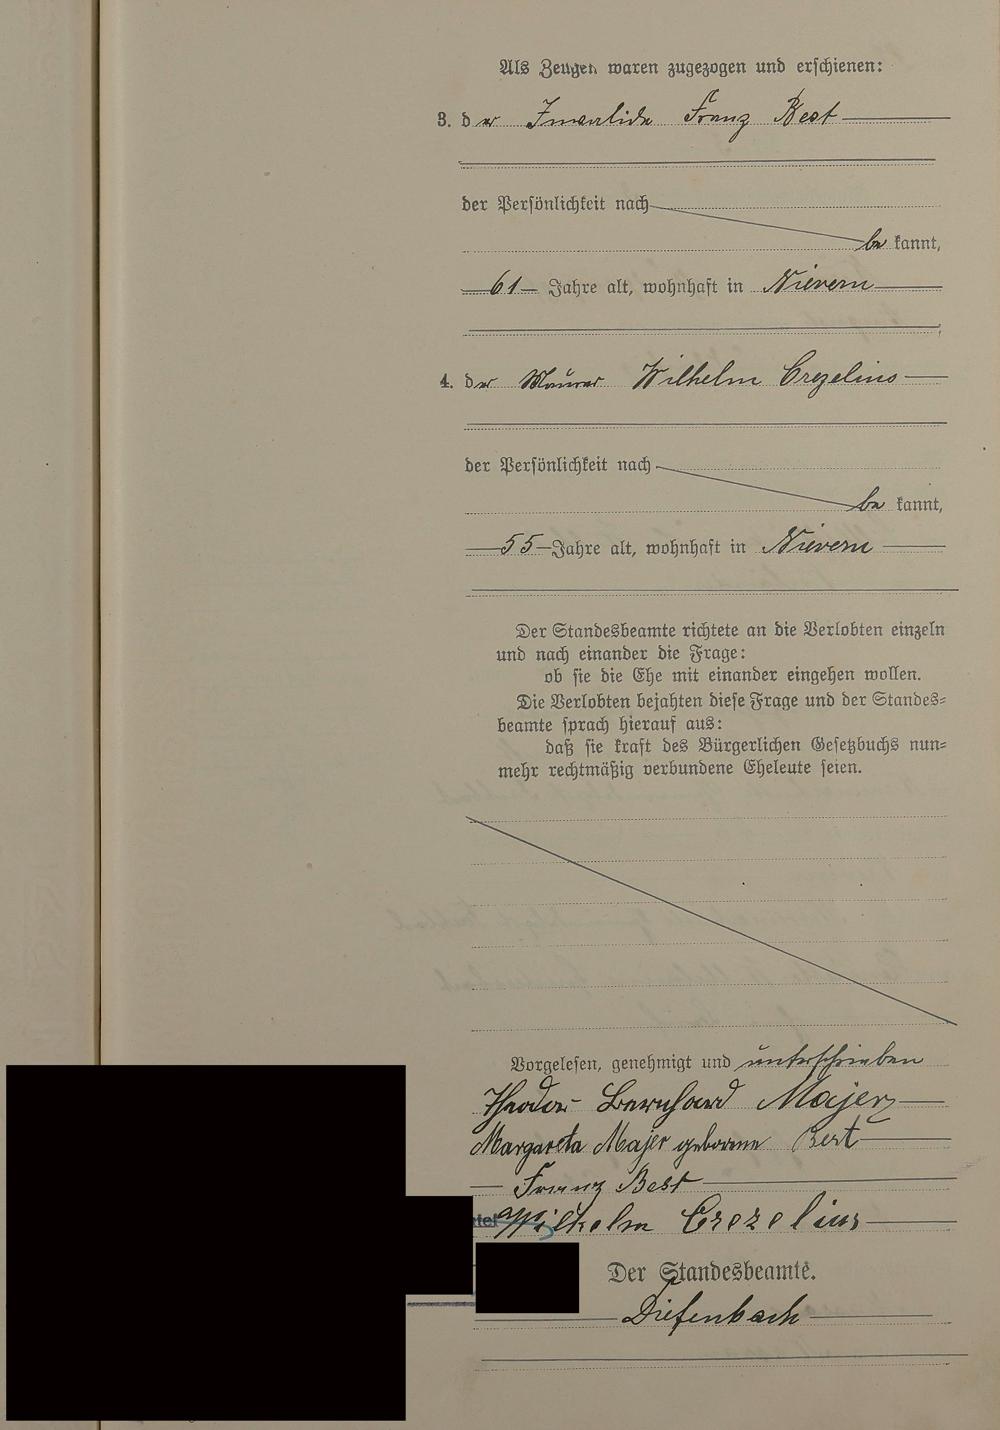 Als Zeugen waren zugezogen und erschienen:
3. der Invalide Franz Best
der Persönlichkeit nach
be kannt,
61 Jahre alt, wohnhaft in Nievern
4. der Maurer Wilhelm Crezelius
der Persönlichkeit nach
be kannt,
55 Jahre alt, wohnhaft in Nievern
Der Standesbeamte richtete an die Verlobten einzeln
und nach einander die Frage:
ob sie die Ehe mit einander eingehen wollen.
Die Verlobten bejahten diese Frage und der Standes=
beamte sprach hierauf aus:
daß sie kraft des Bürgerlichen Gesetzbuchs nun=
mehr rechtmäßig verbundene Eheleute seien.
Vorgelesen, genehmigt und unterschrieben
Theodor Bernhard Majer
Margareta Majer geborene Best
Franz Best
Wilhelm Crezelius
Der Standesbeamte.
Diefenbach